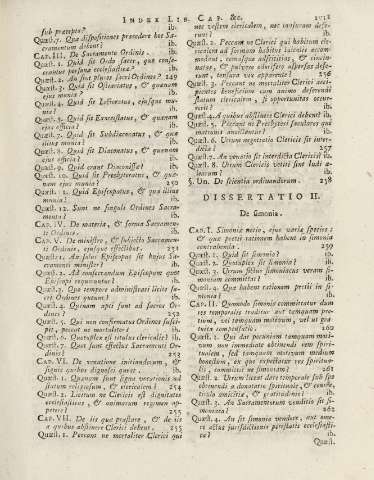 INDEX LIB. CAP. &c.
sub præcepto? ib.
Quæst. 7. Qua dispositiones præcedere hoc Sacramentum debent? ib.
CAP. III. De Sacramento Ordinis. ib.
Quæst. 1. Quid sit Ordo sacer, quo consecrantur personæ ecclesiasticæ? ib.
Quæst. 2. An sint plures sacri Ordines? 249
Quæst. 3. Quid sit Ostiariatus, & quænam
ejus munia? ib.
Quæst. 4. Quid sit Lectoratus, ejusque munus? ib.
Quæst. 5. Quid sit Exorcistatus, & quænam
ejus officia? ib.
Quæst. 7. Quid sit Subdiaconatus, & quæ
illius munia? ib.
Quæst. 8. Quid sit Diaconatus, & quænam
illius officia? ib.
Quæst. 9. Quid erant Diaconissæ? ib.
Quæst. 10. Quid sit Presbyteratus, & quænam ejus munia? 250
Quæst. 11. Quid Episcopatus, & quæ illius
munia? ib.
Quæst. 12. Sunt ne singuli Ordines Sacramenta? ib.
CAP. IV. De materia, & forma Sacramenti Ordinis. ib.
CAP. V. De ministro, & subjecto Sacramenti Ordinis, ejusque effectibus. 251
Quæst. 1. An solus Episcopus sit hujus Sacramenti minister? ib.
Quæst. 2. Ad consecrandum Episcopum quot
Episcopi requiruntur? ib.
Quæst. 3. Quo tempore administrari licite sacri Ordines queunt? ib.
Quæst. 4. Quinam apti sunt ad sacros Ordines? 252
Quæst. 5. Qui non confirmatus Ordines suscipit, peccat ne mortaliter? ib.
Quæst. 6. Quotuplex est titulus clericalis? ib.
Quæst. 7. Quot sunt effectus Sacramenti Ordinis? 253
CAP. VI. De vocatione initiandorum, &
signis quibus dignosci queat. ib.
Quæst. 1. Quænam sunt signa vocationis ad
statum religiosum, & clericalem? 254
Quæst. 2. Licetum ne Clericis est dignitates
ecclesiasticas, & animarum regimen appetere? 255
CAP. VII. De iis quæ præstare, & de iis
a quibus abstinere Clerici debent. 255
Quæst. 1. Peccant ne mortaliter Clerici qui
nec vestem clericalem, nec tonsuram deferunt? ib.
Quæst. 2. Peccant ne Clerici qui habitum clericalem ad formam habitus laicalis accommodant, comasque adstititias, & cincinnatas, & pulvere odorifero aspersas deferunt, tonsura vix apparente? 256
Quæst. 3. Peccat ne mortaliter Clerici accipientes beneficium cum animo deserendi
statum clericalem, si opportunitas occurrerit? ib.
Quæst. 4. A quibus abstinere Clerici debent? ib.
Quæst. 5. Possunt ne Presbyteri sæculares qui
matutinis ancillentur? ib.
Quæst. 6. Utrum negotiatio Clericis sit interdicta? 257
Quæst. 7. An venatio sit interdicta Clericis? ib.
Quæst. 8. Utrum Clericis vetiti sint ludi aleatorum? ib.
§. Un. De scientia ordinandorum. 258
DISSERTATIO II.
De simonia.
CAP. I. Simoniæ notio, ejus variæ species;
& quæ pretii rationem habent in simonia
contrahenda. 259
Quæst. 1. Quid sit simonia? ib.
Quæst. 2. Quotuplex sit simonia? ib.
Quæst. 3. Utrum fictus simoniacus veram simoniam committat? ib.
Quæst. 4. Quæ habent rationem pretii in simonia? ib.
CAP. II. Quomodo simonia committatur dum
res temporalis traditur aut tamquam pretium, vel tamquam motivum, vel ut gratuita compensatio. 260
Quæst. 1. Qui dat pecuniam tamquam motivum non immediate obtinendi rem spiritualem, sed tamquam motivum medium
honestum, ex quo expectatur res spiritualis, committit ne simoniam? 261
Quæst. 2. Utrum liceat dare temporale sub spe
obtinendi a donatario spirituale, & conciliando amicitiæ, & gratitudinis? ib.
Quæst. 3. An Sacramentorum venditio sit simoniaca? 262
Quæst. 4. An sit simonia vendere, aut emere actus jurisdictionis potestatis ecclesiasticæ? ib.
Quæst.